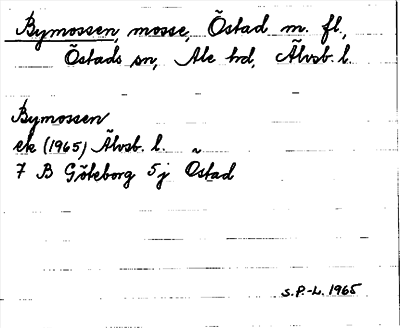 Bymossen, mosse, Östad m. fl.,
Östads sn, Ale hd, Älvsb. l.
Bymossen
ek (1965) Älvsb. l.
7 B Göteborg 5j Östad
S.P.-L. 1965